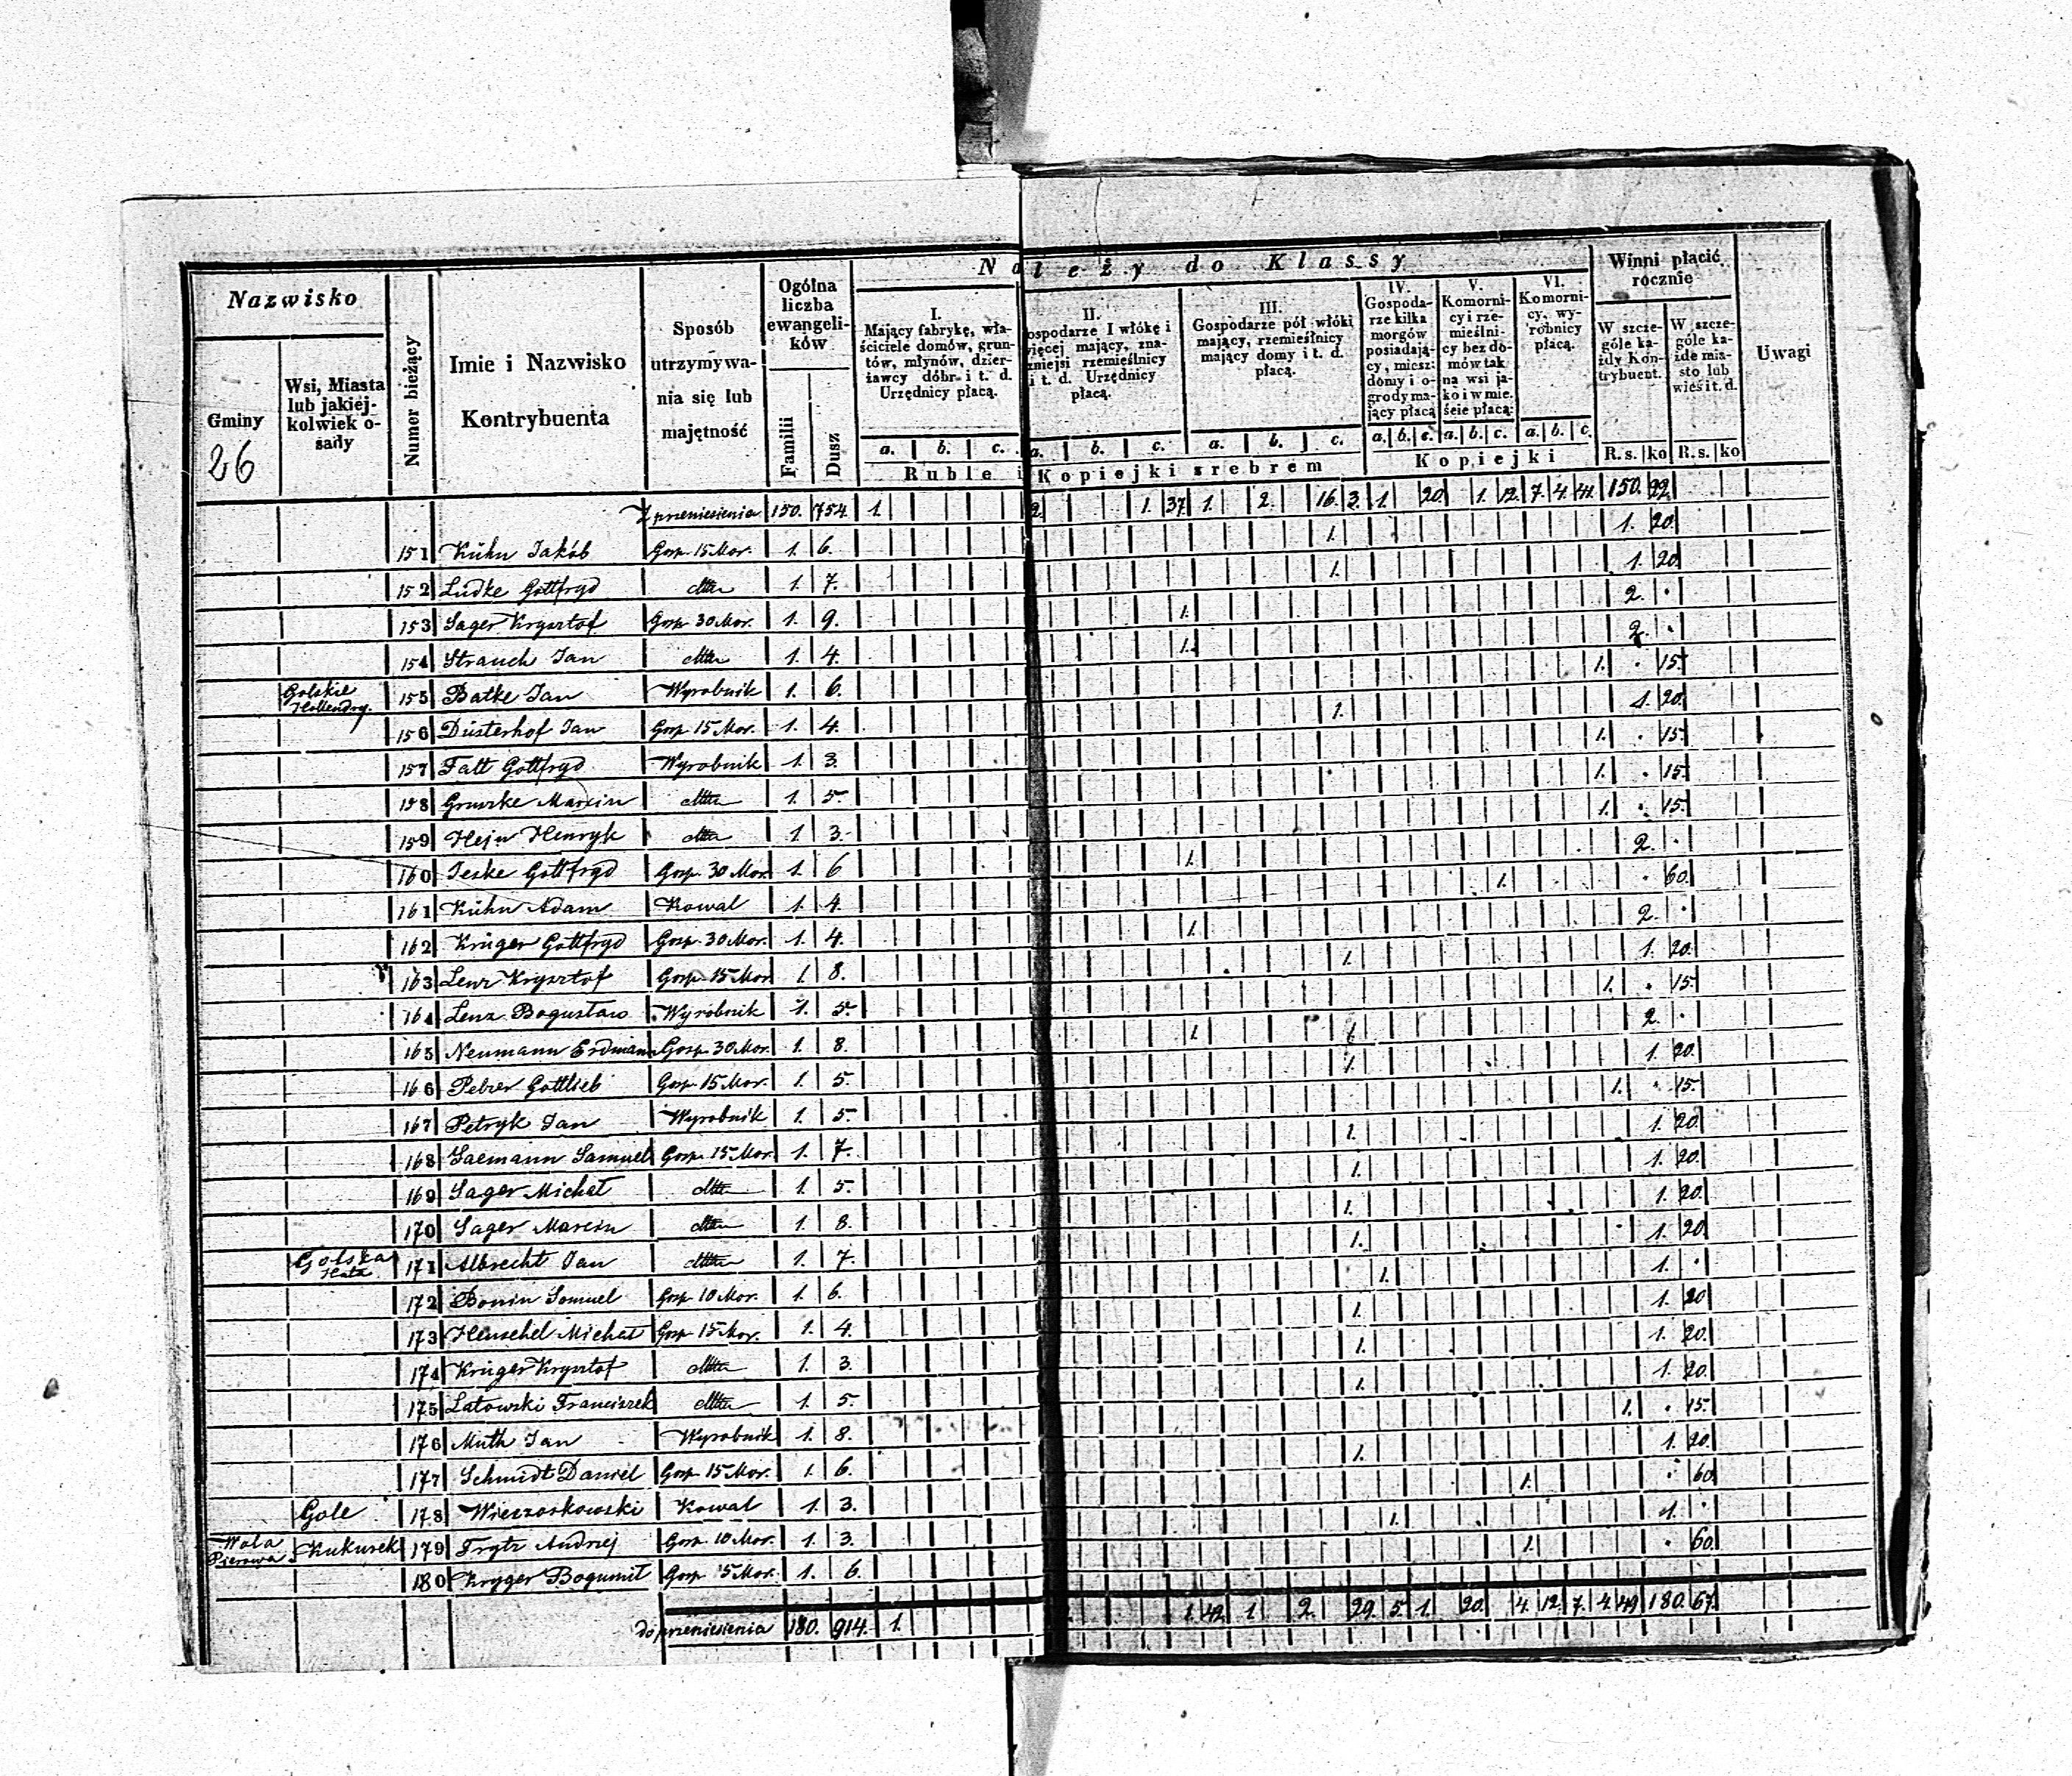 Należy do Klassy
Nazwisko
Gminy
26
Wsi, Miasta lub jakiej-kolwiek o-sady
Numer bieżący
Imie i Nazwisko Kontrybuenta
Sposób utrzymywa-nia się lub majętność
Ogólna liczba ewangeli-ków
Familii
Dusz
I. Mający fabrykę, wła-ściciele domów, grun-tów, młynów, dzier-żawcy dóbr i t. d. Urzędnicy płacą.
II. ospodarze I włókę i więcej mający, zna-zniejsi rzemieślnicy i t. d. Urzędnicy płacą.
III. Gospodarze pół włóki mający, rzemieślnicy mający domy i t. d. płacą.
IV. Gospoda-rze kilka morgów posiadają-cy, miesz: domy i o-grody ma-jący płacą
V. Komorni-cy i rze-mieślni-cy bez do-mów tak na wsi ja-ko i w mie-ście płacą:
VI. Komorni-cy, wy-robnicy płacą.
Winni płacić rocznie
W szcze-góle ka-żdy Kon-trybuent.
W szcze-góle ka-żde mia-sto lub wieś i t. d.
Uwagi
a. b. c. a. b. c. a. b. c. a. b. c. a. b. c. a. b. c. R. s. ko R. s. ko
Ruble i Kopiejki srebrem Kopiejki
Z przeniesienia 150. 754. 1. 2. 1. 37. 1. 2. 16. 3. 1. 20. 1. 12. 7. 4. 44. 150. 22.
151 Kühn Jakób Gosp. 15 Mor. 1. 6. 1. 1. 20.
152 Ludke Gottfryd ditto 1. 7. 1. 1. 20.
153 Sager Krysztof Gosp. 30 Mor. 1. 9. 1. 2. .
154 Strauch Jan ditto 1. 4. 1. 2. .
Golskie Hollendry. 155 Batke Jan Wyrobnik 1. 6. 1. . 15.
156 Düsterhof Jan Gosp. 15 Mor. 1. 4. 1. 1. 20.
157 Falt Gottfryd Wyrobnik 1. 3. 1. . 15.
158 Marcin ditto 1. 5. 1. . 15.
159 Hejn Henryk ditto 1 3. 1. . 15.
160 Jeske Gottfryd Gosp. 30 Mor. 1. 6 1. 2. .
161 Kühn Adam Kowal 1. 4. 1. . 60.
162 Krüger Gottfryd Gosp. 30 Mor. 1. 4. 1. 2. .
163 Lenz Krysztof Gosp. 15 Mor. 1. 8. 1. 1. 20.
164 Lenz Bogusław Wyrobnik 1. 5. 1. . 15.
165 Neumann Erdmann Gosp. 30 Mor. 1. 8. 1. 2. .
166 Gottlieb Gosp. 15 Mor. 1. 5. 1. 1. 20.
167 Petryk Jan Wyrobnik 1. 5. 1. . 15.
168 Saemann Samuel Gosp. 15 Mor. 1. 7. 1. 1. 20.
169 Sager Michał ditto 1. 5. 1. 1. 20.
170 Sager Marcin ditto 1. 8. 1. 1. 20.
Golska Huta 171 Albrecht Jan ditto 1. 7. 1. 1. 20
172 Bonin Samuel Gosp. 10 Mor. 1. 6. 1. 1. .
173 Henschel Michał Gosp. 15 Mor. 1. 4. 1. 1. 20
174 Krüger Krysztof ditto 1. 3. 1. 1. 20.
175 Latowski Franciszek ditto 1. 5. 1. 1. 20.
176 Muth Jan Wyrobnik 1. 8. 1. . 15.
177 Schmidt Daniel Gosp. 15 Mor. 1. 6. 1. 1. 20.
Gole 178 Wieczorkowski Kowal 1. 3. 1. . 60.
Wola Pierowa Kukurek 179 Frytz Andrzej Gosp. 10 Mor. 1. 3. 1. 1. .
180 Kryger Bogumił Gosp. 5 Mor. 1. 6. 1. . 60.
do przeniesienia 180. 914. 1. 1. 42. 1. 2. 29. 5. 1. 20. 4. 12. 7. 4. 49. 180. 67.